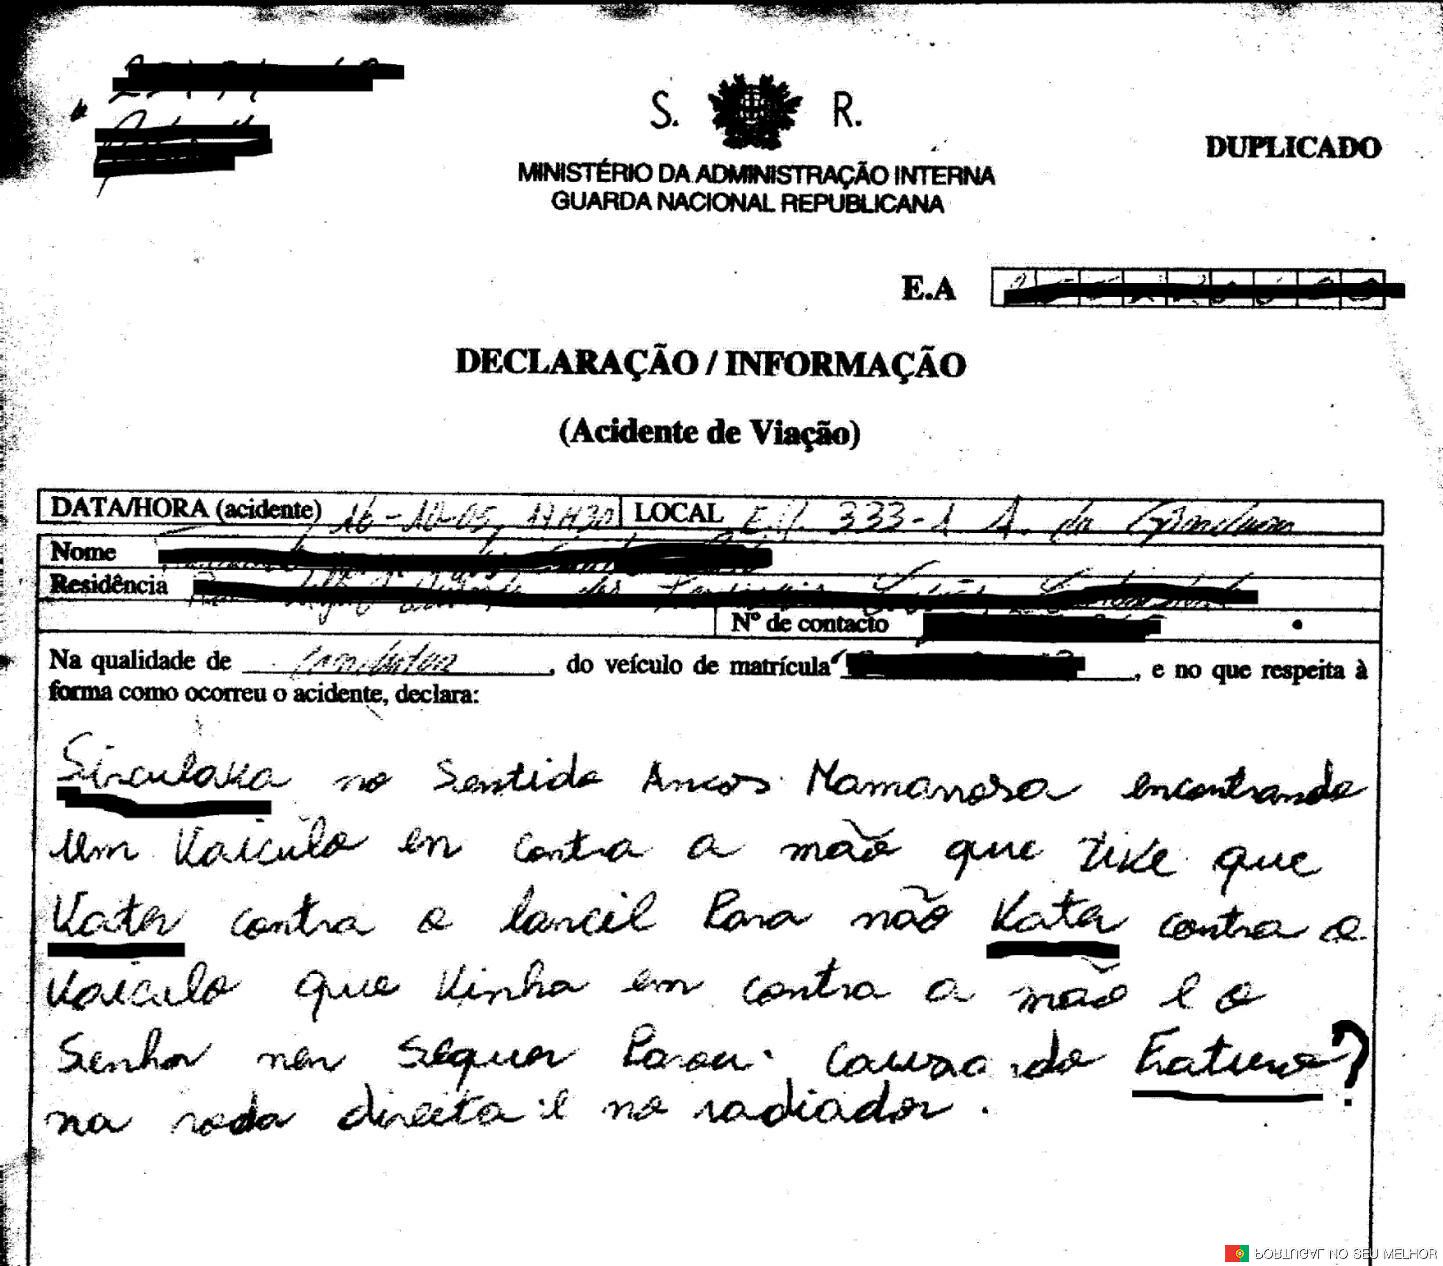 S. R.
DUPLICADO
MINISTÉRIO DA ADMINISTRAÇÃO INTERNA
GUARDA NACIONAL REPUBLICANA
E.A
DECLARAÇÃO / INFORMAÇÃO
(Acidente de Viação)
DATA/HORA (acidente) 16-10-05, 17H30 LOCAL E.N. 333-1 A. da Gândara
Nome
Residência
Nº de contacto
Na qualidade de condutor, do veículo de matrícula, e no que respeita à
forma como ocorreu o acidente, declara:
Sirculava no Sentido Ancos Mamarosa encontrando
um Vaiculo en contra a mão que tive que
Vater contra o lancil Para não Vater contra o
Vaiculo que Vinha em contra a mão e o
Senhor nen Sequer Parou. Causando Fatura?
na roda direita e no radiador.
PORTUGAL NO SEU MELHOR